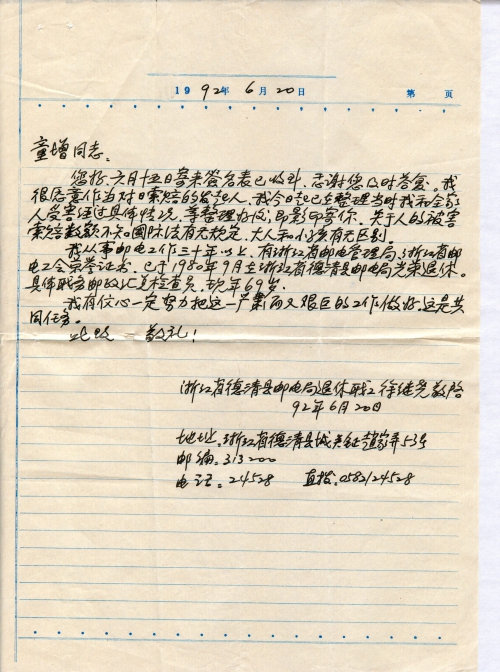 1992年6月20日 第 页
童增同志:
您好,六月十五日寄来签名表已收到,感谢您及时答复。我
很愿意作为对日索赔的发起人,我今日起已在整理当时我和全家
人受害经过具体情况,等整理好后,即影印寄你,关于人的被害
索赔数额不知国际法有无规定,大人和小孩有无区别。
我从事邮电工作三十年以上,有浙江省邮电管理局、浙江省邮
电工会荣誉证书,已于1980年7月在浙江省德清县邮电局光荣退休。
具体职务邮政汇兑检查员,现年69岁。
我有信心一定努力把这一严肃而又艰巨的工作做好,这是共
同任务。
此致 敬礼!
浙江省德清县邮电局退休职工徐继尧敬启
92年6月20日
地址:浙江省德清县城关镇赵家弄53号
邮编:313200
电话:24528 直拨:0582124528